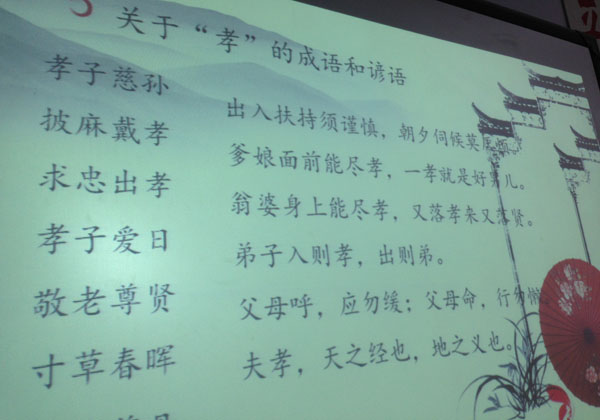 关于“孝”的成语和谚语
孝子慈孙
披麻戴孝
求忠出孝
孝子爱日
敬老尊贤
寸草春晖
出入扶持须谨慎，朝夕伺候莫
爹娘面前能尽孝，一孝就是好男儿。
翁婆身上能尽孝，又落孝来又落贤。
弟子入则孝，出则弟。
父母呼，应勿缓；父母命，行勿懒
夫孝，天之经也，地之义也。